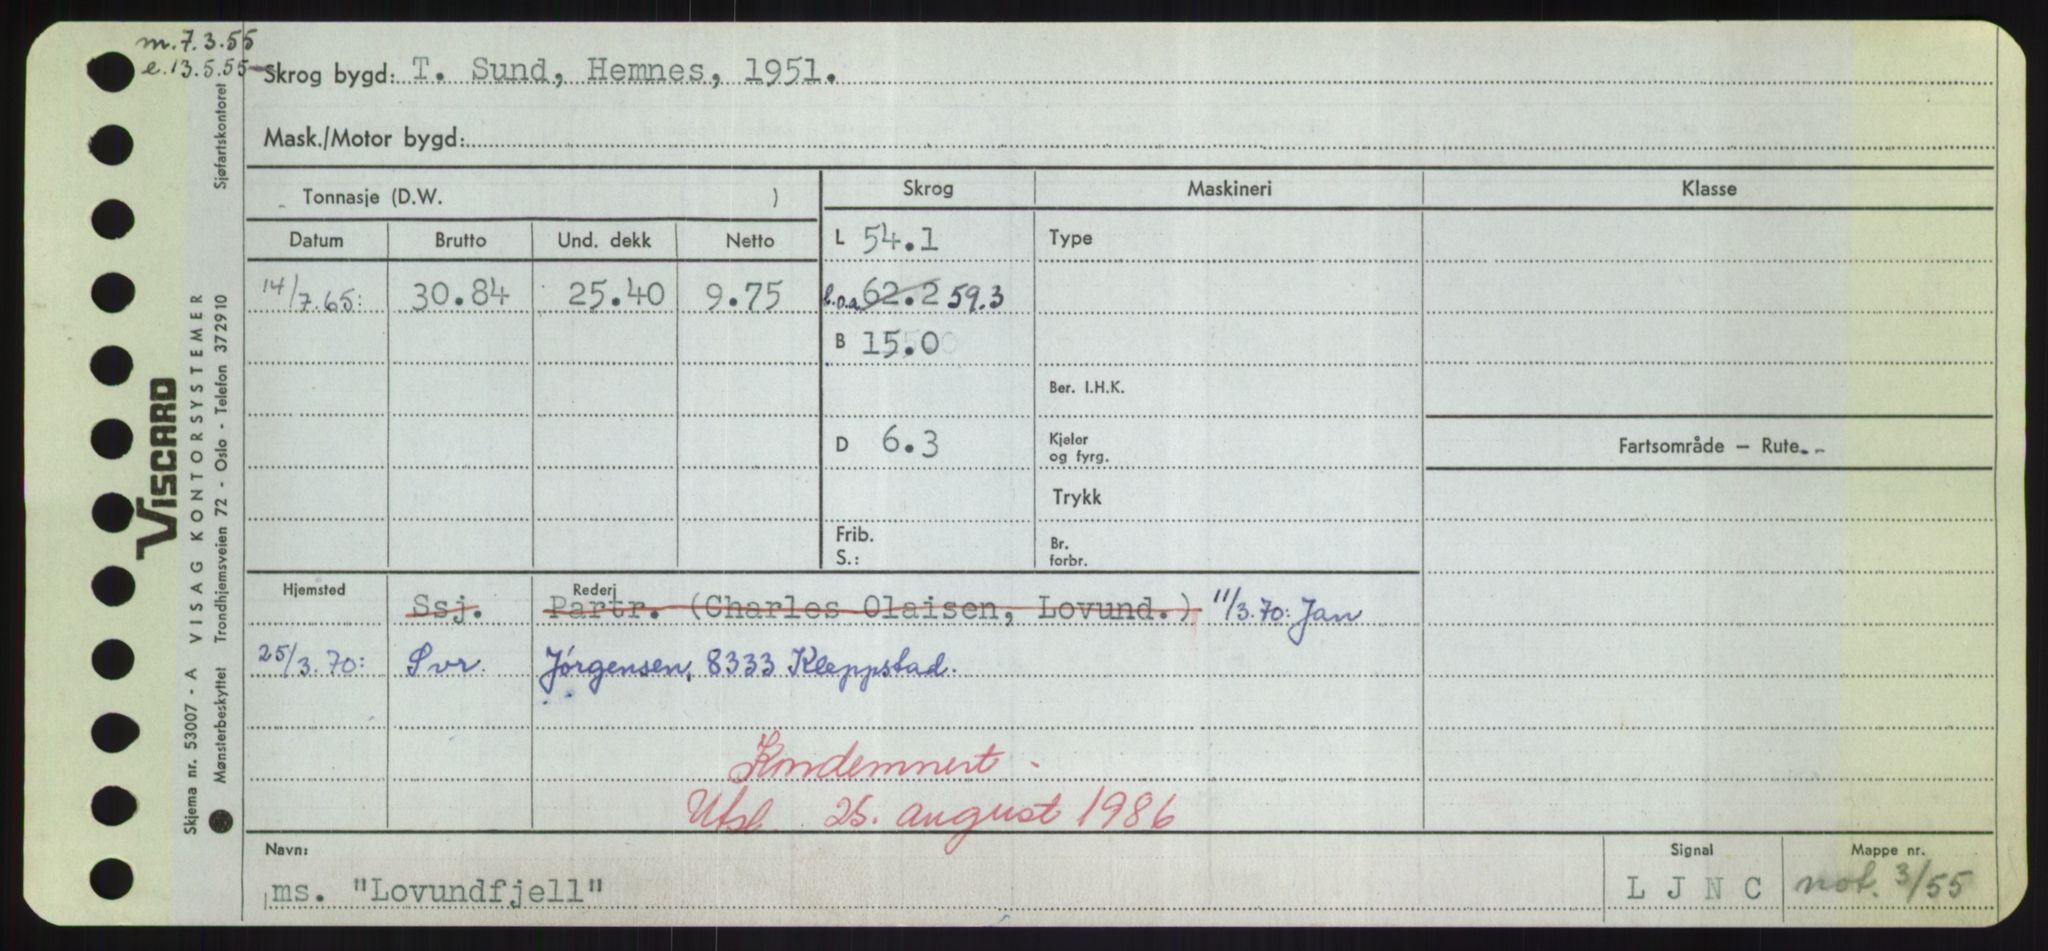 m. 7.3.55
e. 13.5.55
Skrog bygd: T. Sund, Hemnes, 1951.
Mask./Motor bygd:
Tonnasje (D.W. )
Skrog Maskineri Klasse
Datum Brutto Und. dekk Netto
L 54.1 Type
14/7.65: 30.84 25.40 9.75
l.o.a. 62.2 59.3
B 15.0
Ber. I.H.K.
D 6.3 Kjeler og fyrg.
Fartsområde — Rute
Trykk
Frib. S.: Br. forbr.
Hjemsted Rederi
Ssj. Partr. (Charles Olaisen, Lovund.) 11/3.70: Jan
25/3.70: Svr. Jørgensen, 8333 Kleppstad.
Kondemnert.
Utsl. 25. august 1986
Navn: Signal Mappe nr.
ms. "Lovundfjell" L J N C not. 3/55
VISCARD
Skjema nr. 53007 - A VISAG KONTORSYSTEMER
Mønsterbeskyttet Trondhjemsveien 72 - Oslo - Telefon 372910 Sjøfartskontoret